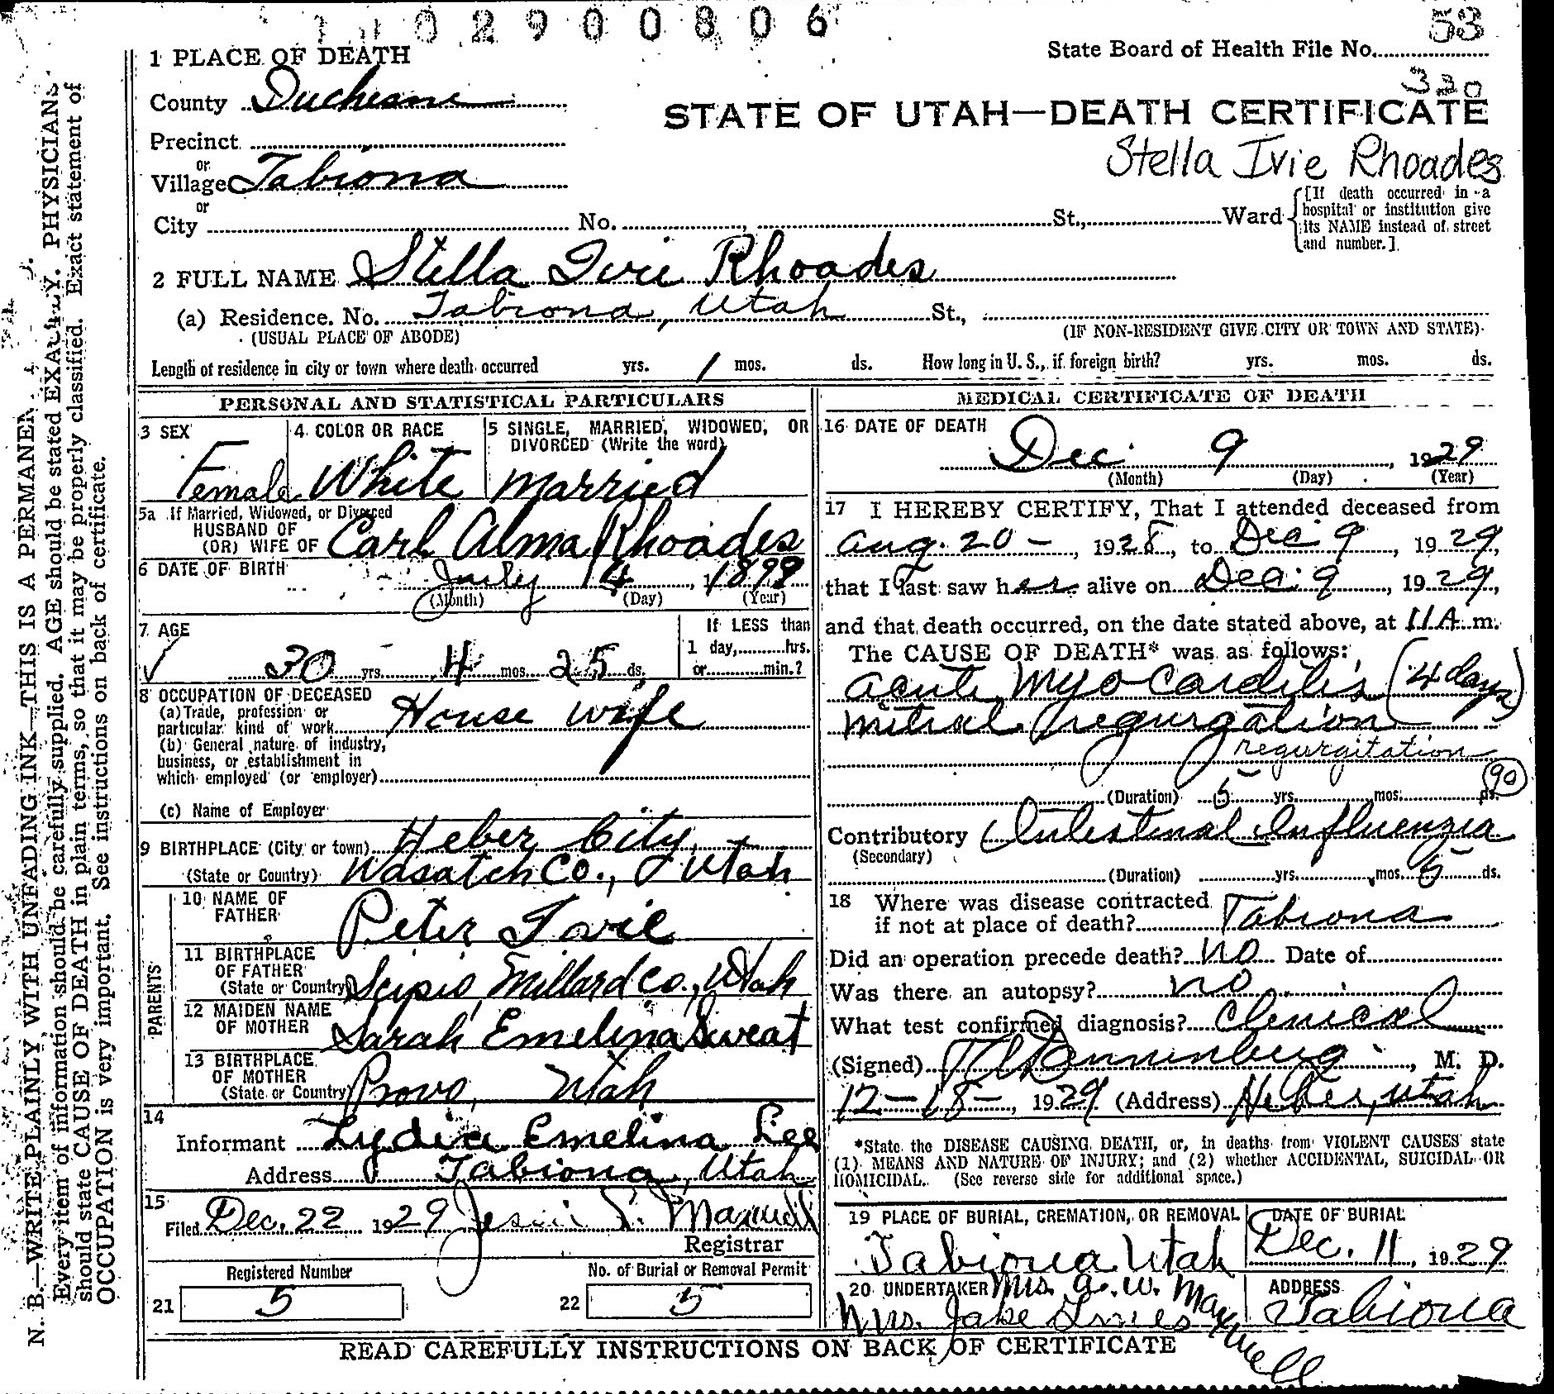 1 1 0 2 9 0 0 8 0 6
53
State Board of Health File No.
330
1 PLACE OF DEATH
County Duchesne
STATE OF UTAH—DEATH CERTIFICATE
Stella Ivie Rhoades
Precinct
or
Village Tabiona
or
City No. St., Ward
[If death occurred in a
hospital or institution give
its NAME instead of street
and number.]
2 FULL NAME Stella Ivie Rhoades
(a) Residence. No. Tabiona, Utah St.,
(USUAL PLACE OF ABODE) (IF NON-RESIDENT GIVE CITY OR TOWN AND STATE)
Length of residence in city or town where death occurred yrs. 1 mos. ds. How long in U. S., if foreign birth? yrs. mos. ds.
PERSONAL AND STATISTICAL PARTICULARS
3 SEX
Female
4 COLOR OR RACE
White
5 SINGLE, MARRIED, WIDOWED, OR
DIVORCED (Write the word)
Married
5a If Married, Widowed, or Divorced
HUSBAND OF
(OR) WIFE OF Carl Alma Rhoades
6 DATE OF BIRTH July 14, 1899
(Month) (Day) (Year)
7 AGE
30 yrs. 4 mos. 25 ds.
If LESS than
1 day,........hrs.
or........min.?
8 OCCUPATION OF DECEASED
(a) Trade, profession or
particular kind of work House wife
(b) General nature of industry,
business, or establishment in
which employed (or employer)
(c) Name of Employer
9 BIRTHPLACE (City or town) Heber City,
(State or Country) Wasatch Co., Utah
PARENTS
10 NAME OF
FATHER Peter Ivie
11 BIRTHPLACE
OF FATHER
(State or Country) Scipio, Millard Co., Utah
12 MAIDEN NAME
OF MOTHER Sarah Emelina Sweat
13 BIRTHPLACE
OF MOTHER
(State or Country) Provo, Utah
14
Informant Lydia Emelina Lee
Address Tabiona, Utah
15
Filed Dec. 22 1929 Maxwell
Registrar
Registered Number
21 5
No. of Burial or Removal Permit
22 5
MEDICAL CERTIFICATE OF DEATH
16 DATE OF DEATH
Dec. 9, 1929
(Month) (Day) (Year)
17 I HEREBY CERTIFY, That I attended deceased from
Aug. 20 -, 1928, to Dec 9, 1929,
that I last saw her alive on Dec. 9, 1929,
and that death occurred, on the date stated above, at 11 A. m.
The CAUSE OF DEATH* was as follows:
Acute Myocarditis (4 days)
Mitral regurgation
regurgitation
90
(Duration) 5 yrs. mos. ds.
Contributory Intestinal Influenzia
(Secondary)
(Duration) yrs. mos. 5 ds.
18 Where was disease contracted
if not at place of death? Tabiona
Did an operation precede death? no Date of
Was there an autopsy? no
What test confirmed diagnosis? Clenical
(Signed) Dannenberg, M. D.
12-18-, 1929 (Address) Heber, Utah
*State the DISEASE CAUSING DEATH, or, in deaths from VIOLENT CAUSES state
(1) MEANS AND NATURE OF INJURY; and (2) whether ACCIDENTAL, SUICIDAL OR
HOMICIDAL. (See reverse side for additional space.)
19 PLACE OF BURIAL, CREMATION, OR REMOVAL
Tabiona Utah
DATE OF BURIAL
Dec. 11, 1929
20 UNDERTAKER Mrs. A. W. Maxwell
Mrs. Jake
ADDRESS
Tabiona
READ CAREFULLY INSTRUCTIONS ON BACK OF CERTIFICATE
N. B.—WRITE PLAINLY, WITH UNFADING INK—THIS IS A PERMANEN
Every item of information should be carefully supplied. AGE should be stated EXACTLY. PHYSICIANS
should state CAUSE OF DEATH in plain terms, so that it may be properly classified. Exact statement of
OCCUPATION is very important. See instructions on back of certificate.